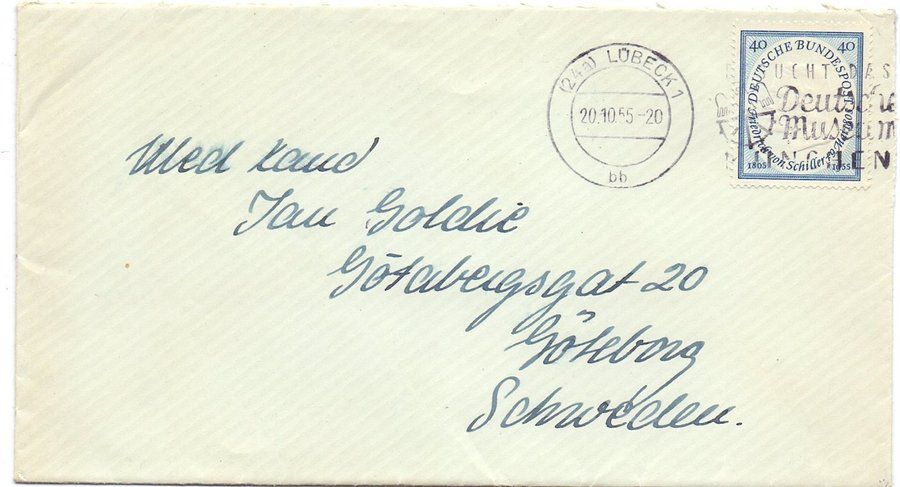 (24a) LÜBECK 1
20.10.55-20
bb
40 DEUTSCHE BUNDESPOST 40
Friedrich von Schiller
1805 1955
UCHT DAS
Deutsche
Museum
MÜNCHEN
Med kand
Jan Goldie
Götabergsgat 20
Göteborg
Schweden.